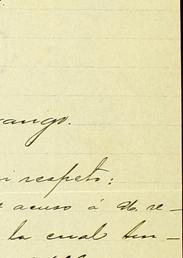 rango.
i respeto:
acuso á U. re-
la cual hu-